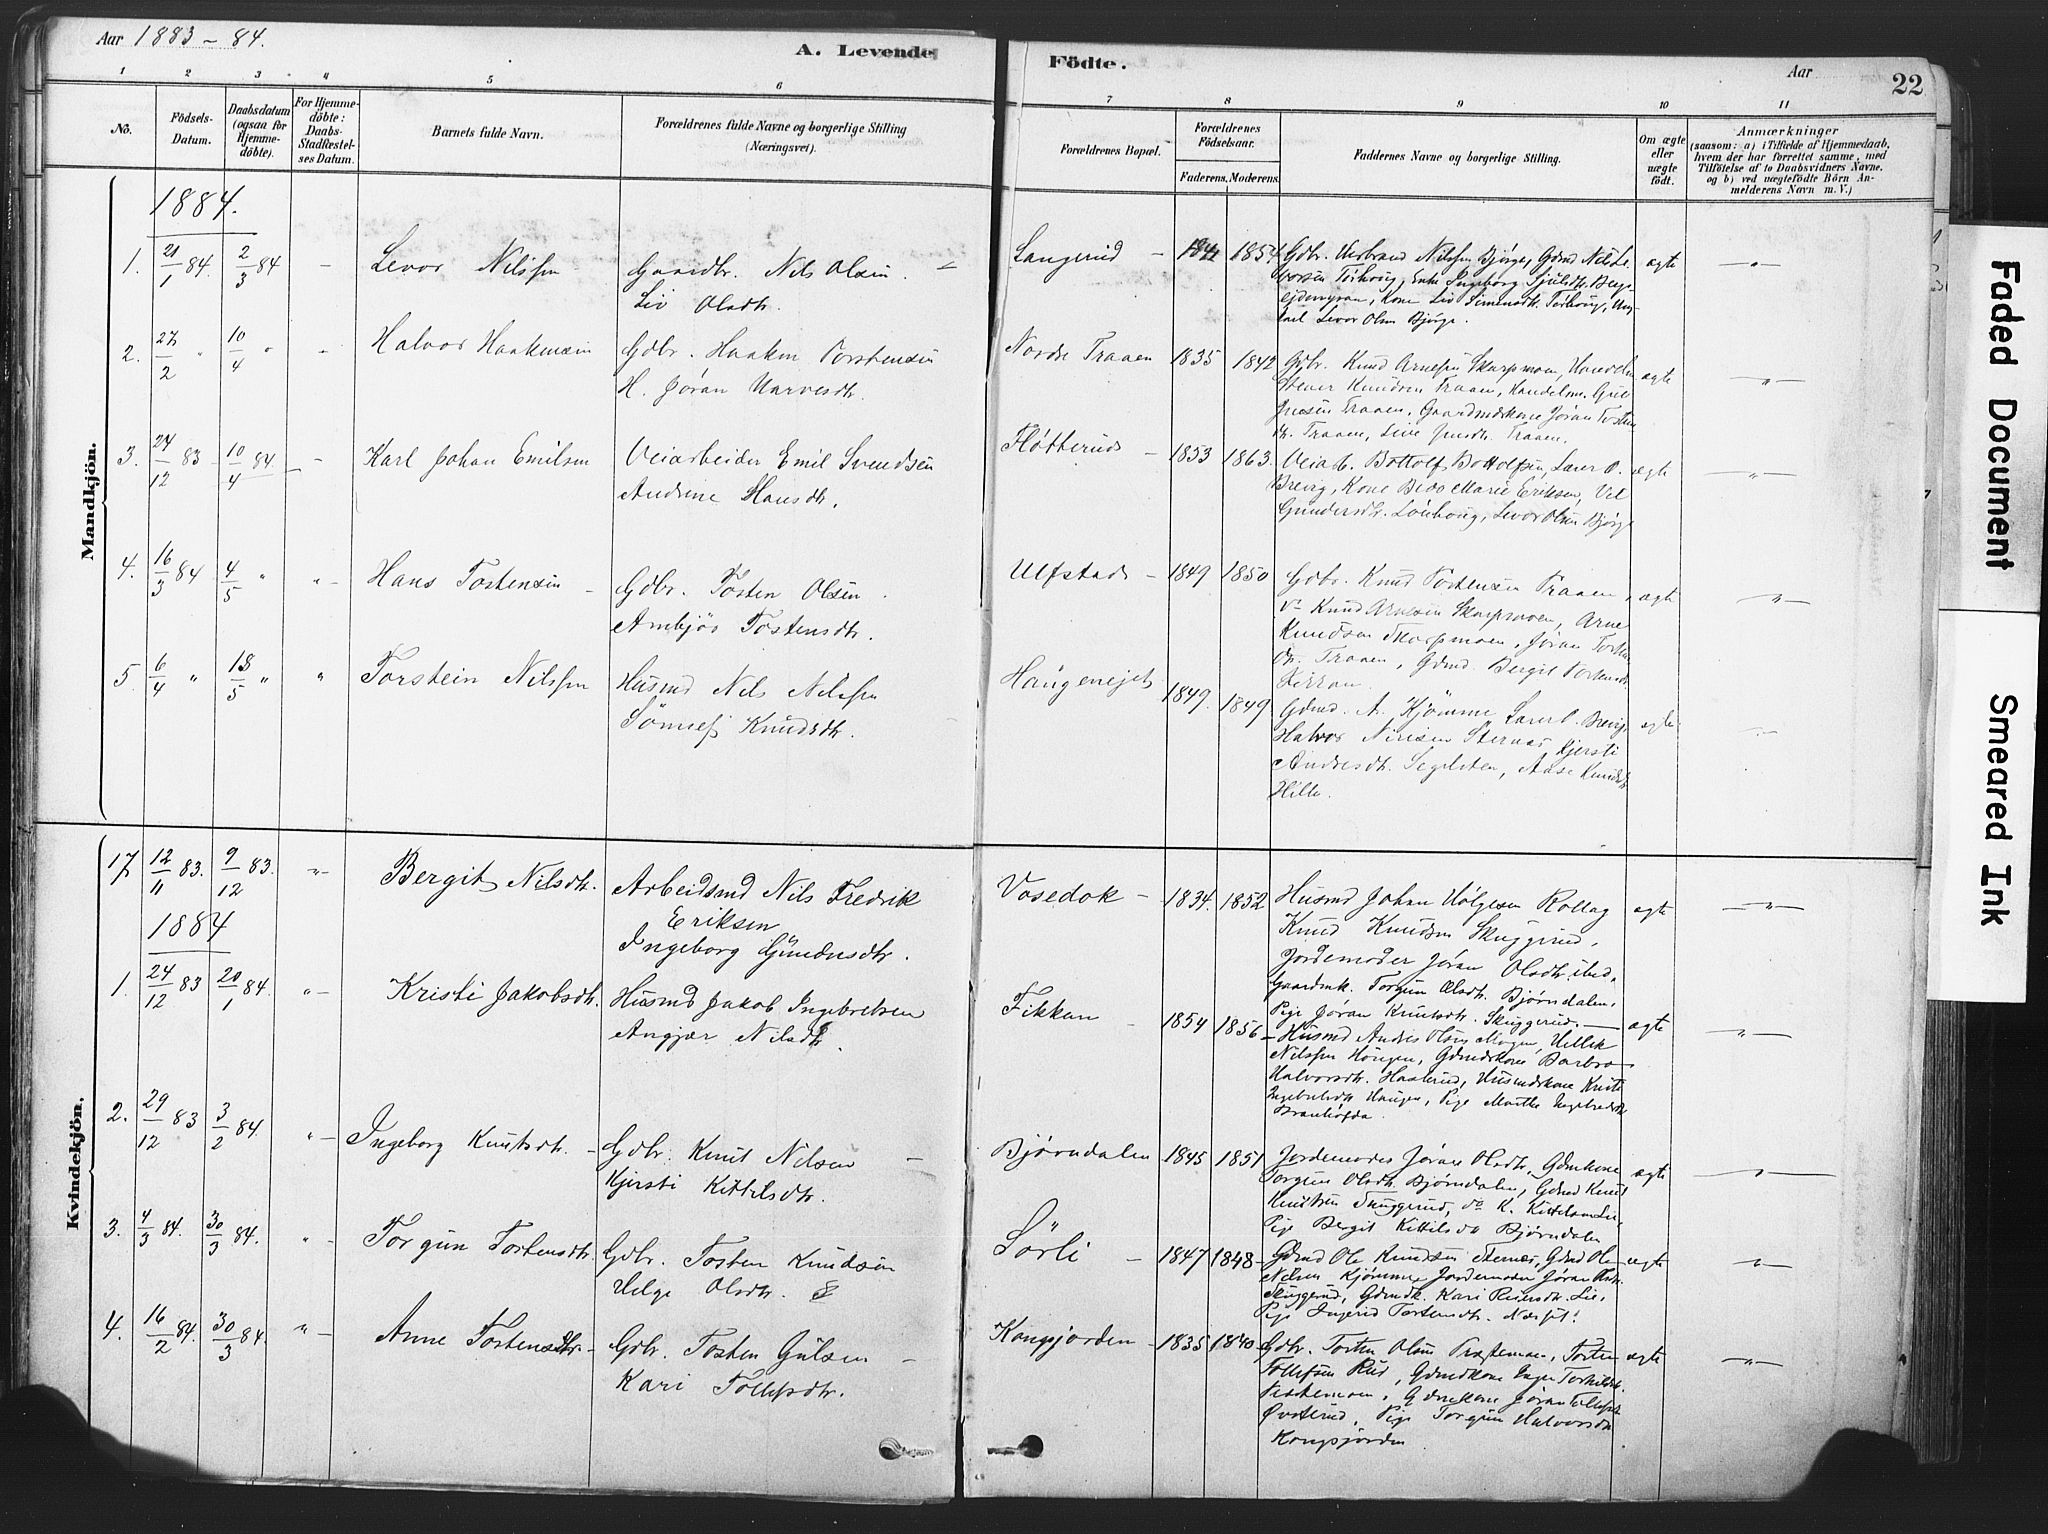 Aar 1883-84.
A. Levende Födte.
Aar
22
1 2 3 4 5 6 7 8 9 10 11
No.
Födsels-
Datum.
Daabsdatum
(ogsaa for
Hjemme-
döbte).
For Hjemme-
döbte:
Daabs-
Stadfæstel-
ses Datum.
Barnets fulde Navn.
Forældrenes fulde Navne og borgerlige Stilling
(Næringsvei).
Forældrenes Bopæl.
Forældrenes
Födselsaar.
Faderens. Moderens.
Faddernes Navne og borgerlige Stilling.
Om ægte
eller
uægte
født.
Anmærkninger
(saasom: a) i Tilfælde af Hjemmedaab,
hvem der har forrettet samme, med
Tilföielse af to Daabsvidners Navne.
og b) ved uægtefödte Börn An-
melderens Navn m. V.)
Mandkjön.
1884.
1. 21/1 84. 2/3 84 – Levor Nilssen Gaardbr. Nils Olsen
Liv Olsdtr.
Langerud – 1854 Gdbr. Nilssen Bjørge, Gdmd Nils Le-
vorsen Torhoug, Enke Ingeborg
Kone Liv Simensdtr. Torhoug, Ung-
karl Levor Olsen Bjørge.
ægte – " –
2. 27/2 " 10/4 " – Halvor Haakensen Gdbr. Haaken Torstensen
H. Jøran Narvesdtr.
Nordre Traaen 1835 1842 Gdbr. Knud Arnesen Skarpmoen,
Stener Knudsen Traaen, Handelsm. Gul-
Traaen, Gaardmdskone Jøran Tosten
dtr. Traaen, Live Traaen.
ægte – " –
3. 24/12 83 10/4 84 – Karl Johan Emilsen Veiarbeider Emil Svendsen
Andrine Hansdtr.
Fløtterud – 1853 1863. Veiarb. Bottolf Bottolfsen, Lærer O.
Brevig, Kone Marie Eriksen,
Gundersdtr. Levor Olsen Bjørge
ægte – " –
4. 16/3 84 4/5 " " – Hans Tostensen – Gdbr. Tosten Olsen.
Ambjør Tostensdtr.
Ulfstad – 1849 1850 Gdbr. Knud Tostensen Traaen,
do Knud Arnesen Skarpmoen, Arne
Knudsen Skarpmoen, Jøran Tosten
dtr. Traaen, Gdmd. Bergit Tostensdtr.
Fikkan.
ægte – " –
5. 6/4 " 18/5 " " Torstein Nilssen Husmd Nils Nilssen
Sönnef Knudsdtr.
Haugeneiet 1849. 1849 Gdmd. A. Kjømme Lærer O. Brevig,
Halvor Nirisen Sternes Kjersti
Andresdtr. Segelsten, Aase Knudsdtr.
Hille.
ægte –
Kvindekjön.
17 12/11 83. 9/12 83. " – Bergit Nilsdtr. Arbeidsmd Nils Fredrik
Eriksen
Ingeborg Gundersdtr.
Vosedok – 1834. 1852 Husmd Johan Holgesen Rollag
Knud Knudsen Skuggerud,
Jordemoder Jøran Olsdtr. ibid.,
Gaardmk. Torgun Olsdtr. Bjørndalen,
Pige Jøran Knutsdtr. Skuggerud.
ægte – " –
1884
1. 24/12 83 20/1 84. " – Kristi Jakobsdtr. Husmd Jakob Ingebretsen
Angjær Nilsdtr.
Fikkan – 1854 1856 – Husmd Andres Olsen Mogen, Ullik
Nilssen Haugen, Gdmdskone Barbro
Halvorsdtr. Haslerud, Husmdskone Kristi
Ingebretsdtr. Haugen, Pige Marthe Ingebretsdtr.
Branhøfda.
ægte – " –
2. 29/12 83 3/2 84. " – Ingeborg Knutsdtr. – Gdbr. Knut Nilsen –
Kjersti Kittilsdtr.
Bjørndalen 1845 1851 Jordemoder Jøran Olsdtr., Gdmkone
Torgun Olsdtr. Bjørndalen, Gdmd Knut
Knutsen Skuggerud, do K. Kittelsen Lie,
Pige Bergit Kittilsdtr Bjørndalen
ægte – " –
3. 4/3 84. 30/3 84. " – Torgun Tostensdtr. Gdbr. Tosten Knudsen
Helge Olsdtr.
Sörli – 1847 1848 – Gdmd Ole Knudsen Sternes, Gdmd Ole
Nilsen Kjømme, Jordemoder Jøran Olsdtr.
Skuggerud, Gdmdk. Kari Reiersdtr. Lie,
Pige Ingerid Tostensdtr. Næset.
ægte – " –
4. 16/2 84. 30/3 84. " – Anne Tostensdtr. – Gdbr. Tosten Gulsen –
Kari Tollefsdtr.
Kongsjorden – 1835 1840 – Gdbr. Tosten Olsen Præstemoen, Tosten
Tollefsen Rud, Gdmdkone Inger Torkildsdtr.
Præstemoen, Gdmdkone Jøran Tollefsdtr.
Øvsterud, Pige Torgun Halvorsdtr.
Kongsjorden
ægte – " –
Faded Document
Smeared Ink